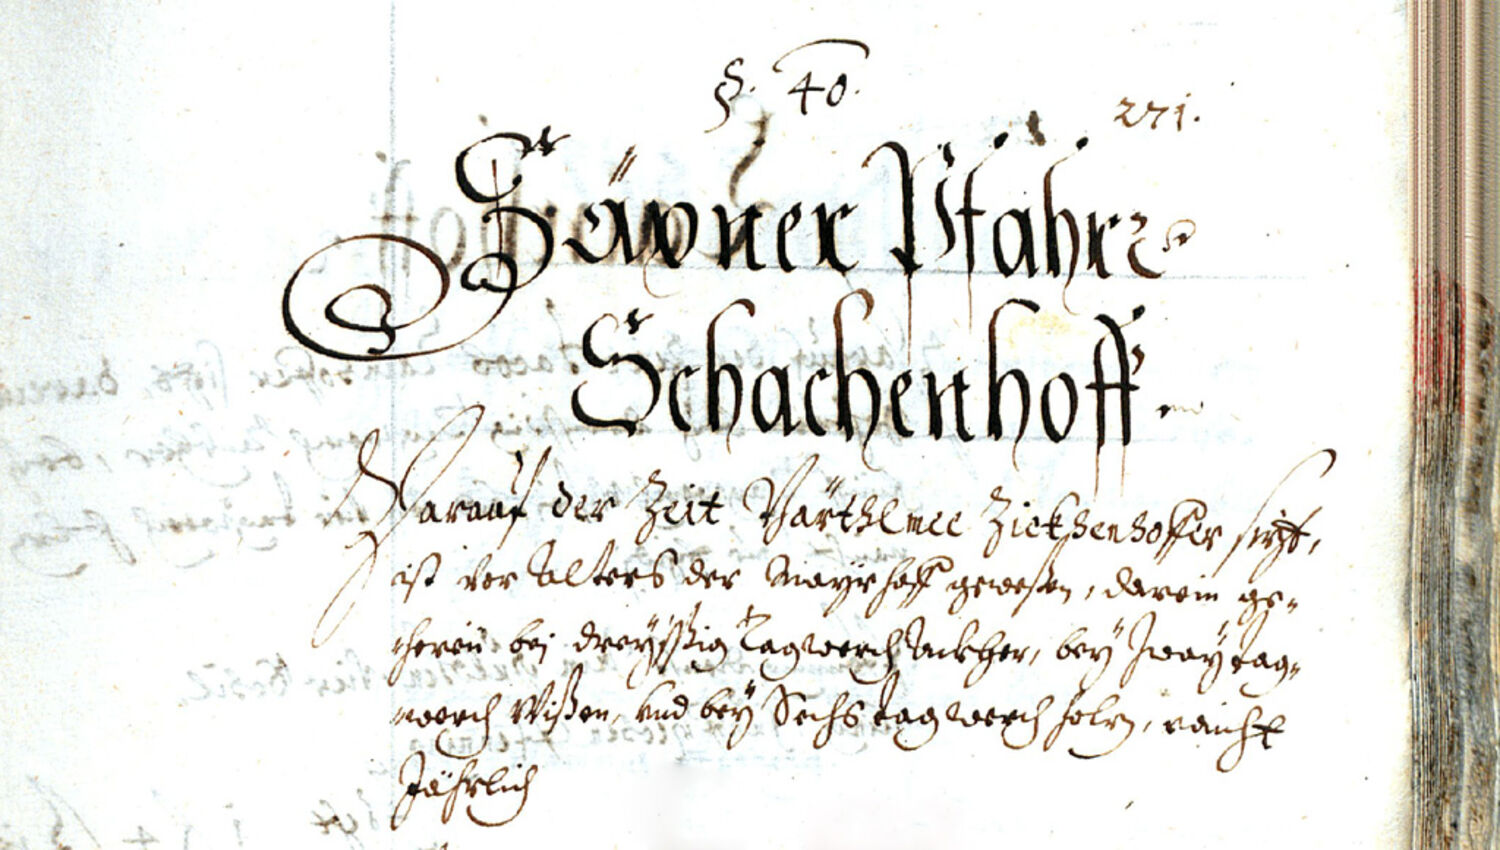 §. 40.
271.
Säxner Pfahr
Schachenhoff.
Darauf der Zeit Bärthlmee Zickhenhoffer sizt,
ist vor Alters der Mayrhoff gewesen, darein ge-
hören bei dreyssig Tagwerch Äckher, bey Zway tag-
werch Wißen, und bey Sechs tagwerch holz, raicht
Jährlich